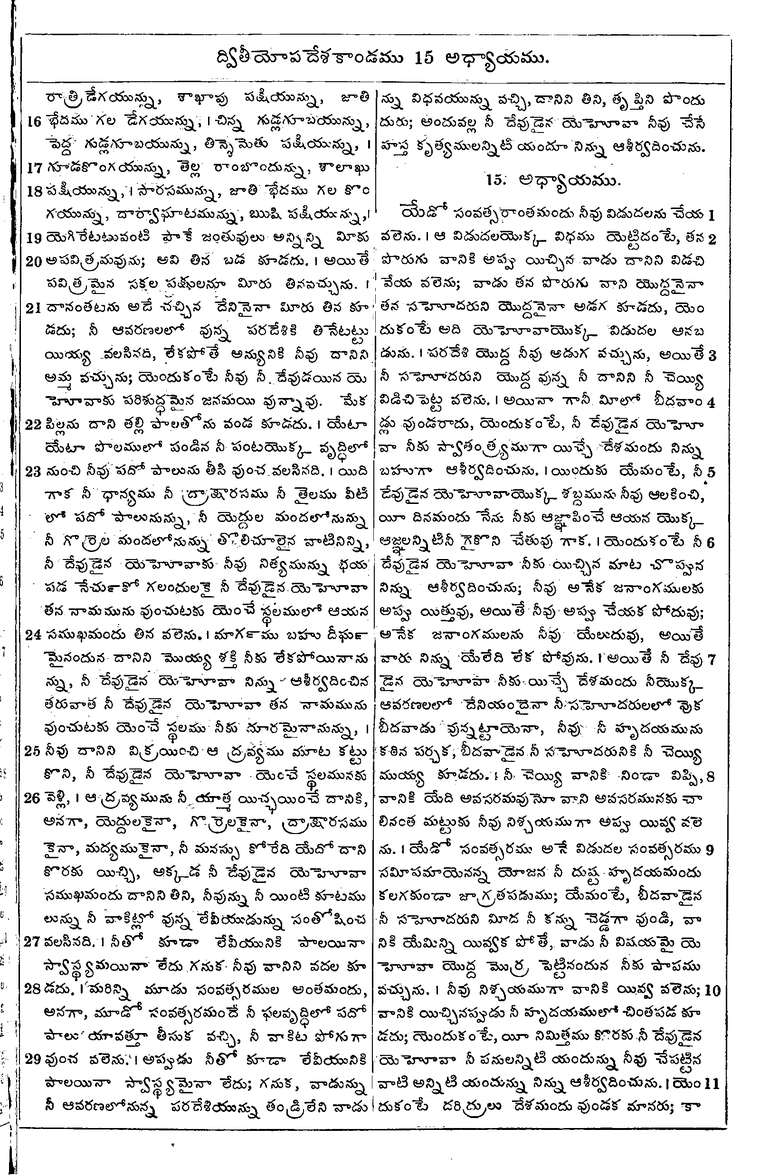 ద్వితీయోపదేశకాండము 15 అధ్యాయము.
రాత్రిడేగయున్ను, శాఖాపు పక్షియున్ను, జాతి
16 భేదము గల డేగయున్ను, । చిన్న గుడ్లగూబయున్ను,
పెద్ద గుడ్లగూబయున్ను, తిన్సెమెతు పక్షియున్ను, ।
17 గూడకొంగయున్ను, తెల్ల రాంబొందున్ను, శాలాఖు
18 పక్షియున్ను, । సారసమున్ను, జాతి భేదము గల కొం
గయున్ను, దార్వాఘాటమున్ను, ఋషి పక్షియున్ను, ।
19 యెగిరేటటువంటి పాకే జంతువులు అన్నిన్ని మీకు
20 అపవిత్రమవును; అవి తిన బడ కూడదు. । అయితే
పవిత్రమైన సకల పక్షులనూ మీరు తినవచ్చును. ।
21 దానంతటను అదే చచ్చిన దేనినైనా మీరు తిన కూ
డదు; నీ ఆవరణలలో వున్న పరదేశికి తినేటట్టు
యియ్య వలసినది, లేకపోతే అన్యునికి నీవు దానిని
అమ్మ వచ్చును; యెందుకంటే నీవు నీ దేవుడయిన యె
హోవాకు పరిశుద్ధమైన జనమయి వున్నావు. మేక
22 పిల్లను దాని తల్లి పాలతోను వండ కూడదు. । యేటా
యేటా పొలములో పండిన నీ పంటయొక్క వృద్ధిలో
23 నుంచి నీవు పదో పాలును తీసి వుంచ వలసినది. । యిది
గాక నీ ధాన్యము నీ ద్రాక్షారసము నీ తైలము వీటి
లో పదో పాలునున్ను, నీ యెద్దుల మందలోనున్ను
నీ గొర్రెల మందలోనున్ను తొలిచూలైన వాటినిన్ని,
నీ దేవుడైన యెహోవాకు నీవు నిత్యమున్ను భయ
పడ నేర్చుకో గలందులకై నీ దేవుడైన యెహోవా
తన నామమును వుంచుటకు యెంచే స్థలములో ఆయన
24 సముఖమందు తిన వలెను. । మార్గము బహు దీర్ఘ
మైనందున దానిని మొయ్య శక్తి నీకు లేకపోయినాను
న్ను, నీ దేవుడైన యెహోవా నిన్ను ఆశీర్వదించిన
తరువాత నీ దేవుడైన యెహోవా తన నామమును
వుంచుటకు యెంచే స్థలము నీకు దూరమైనానున్ను, ।
25 నీవు దానిని విక్రయించి ఆ ద్రవ్యము మూట కట్టు
కొని, నీ దేవుడైన యెహోవా యెంచే స్థలమునకు
26 వెళ్లి, । ఆ ద్రవ్యమును నీ యాత్మ యిచ్ఛయించే దానికి,
అనగా, యెద్దులకైనా, గొర్రెలకైనా, ద్రాక్షారసము
కైనా, మద్యముకైనా, నీ మనస్సు కోరేది యేదో దాని
కొరకు యిచ్చి, అక్కడ నీ దేవుడైన యెహోవా
సముఖమందు దానిని తిని, నీవున్ను నీ యింటి కూటము
లున్ను నీ వాకిట్లో వున్న లేవీయుడున్ను సంతోషించ
27 వలసినది. । నీతో కూడా లేవీయునికి పాలయినా
స్వాస్థ్యమయినా లేదు గనుక నీవు వానిని వదల కూ
28 డదు. । మరిన్ని మూడు సంవత్సరముల అంతమందు,
అనగా, మూడో సంవత్సరమందే నీ ఫలవృద్ధిలో పదో
పాలు యావత్తూ తీసుక వచ్చి, నీ వాకిట పోగుగా
29 వుంచ వలెను. । అప్పుడు నీతో కూడా లేవీయునికి
పాలయినా స్వాస్థ్యమైనా లేదు; గనుక, వాడున్ను
నీ ఆవరణలోనున్న పరదేశియున్ను తండ్రిలేని వాడు
న్ను విధవయున్ను వచ్చి, దానిని తిని, తృప్తిని పొందు
దురు; అందువల్ల నీ దేవుడైన యెహోవా నీవు చేసే
హస్త కృత్యములన్నిటి యందూ నిన్ను ఆశీర్వదించును.
15. అధ్యాయము.
యేడో సంవత్సరాంతమందు నీవు విడుదలను చేయ 1
వలెను. । ఆ విడుదలయొక్క విధము యెట్టిదంటే, తన 2
పొరుగు వానికి అప్పు యిచ్చిన వాడు దానిని విడచి
వేయ వలెను; వాడు తన పొరుగు వాని యొద్దనైనా
తన సహోదరుని యొద్దనైనా అడగ కూడదు, యెం
దుకంటే అది యెహోవాయొక్క విడుదల అనబ
డును. । పరదేశి యొద్ద నీవు అడుగ వచ్చును, అయితే 3
నీ సహోదరుని యొద్ద వున్న నీ దానిని నీ చెయ్యి
విడిచిపెట్ట వలెను. । అయినా గానీ మీలో బీదవాం 4
డ్లు వుండరాదు, యెందుకంటే, నీ దేవుడైన యెహో
వా నీకు స్వాతంత్ర్యముగా యిచ్చే దేశమందు నిన్ను
బహుగా ఆశీర్వదించును. । యిందుకు యేమంటే, నీ 5
దేవుడైన యెహోవాయొక్క శబ్దమును నీవు ఆలకించి,
యీ దినమందు నేను నీకు ఆజ్ఞాపించే ఆయన యొక్క
ఆజ్ఞలన్నిటినీ గైకొని చేతువు గాక. । యెందుకంటే నీ 6
దేవుడైన యెహోవా నీకు యిచ్చిన మాట చొప్పున
నిన్ను ఆశీర్వదించును; నీవు అనేక జనాంగములకు
అప్పు యిత్తువు, అయితే నీవు అప్పు చేయక పోదువు;
అనేక జనాంగములను నీవు యేలుదువు, అయితే
వారు నిన్ను యేలేది లేక పోవును. । అయితే నీ దేవు 7
డైన యెహోవా నీకు యిచ్చే దేశమందు నీయొక్క
ఆవరణలలో దేనియందైనా నీ సహోదరులలో వుక
బీదవాడు వున్నట్టాయెనా, నీవు నీ హృదయమును
కఠిన పర్చక, బీదవాడైన నీ సహోదరునికి నీ చెయ్యి
ముయ్య కూడదు. । నీ చెయ్యి వానికి నిండా విప్పి, 8
వానికి యేది అవసరమవునో వాని అవసరమునకు చా
లినంత మట్టుకు నీవు నిశ్చయముగా అప్పు యివ్వ వలె
ను. । యేడో సంవత్సరము అనే విడుదల సంవత్సరము 9
సమీపమాయెనన్న యోజన నీ దుష్ట హృదయమందు
కలగకుండా జాగ్రతపడుము; యేమంటే, బీదవాడైన
నీ సహోదరుని మీద నీ కన్ను చెడ్డగా వుండి, వా
నికి యేమిన్ని యివ్వక పోతే, వాడు నీ విషయమై యె
హోవా యొద్ద మొర్ర పెట్టినందున నీకు పాపము
వచ్చును. । నీవు నిశ్చయముగా వానికి యివ్వ వలెను; 10
వానికి యిచ్చినప్పుడు నీ హృదయములో చింతపడ కూ
డదు; యెందుకంటే, యీ నిమిత్తము కొరకు నీ దేవుడైన
యెహోవా నీ పనులన్నిటి యందున్ను నీవు చేపట్టిన
వాటి అన్నిటి యందున్ను నిన్ను ఆశీర్వదించును. । యెం 11
దుకంటే దరిద్రులు దేశమందు వుండక మానరు; కా